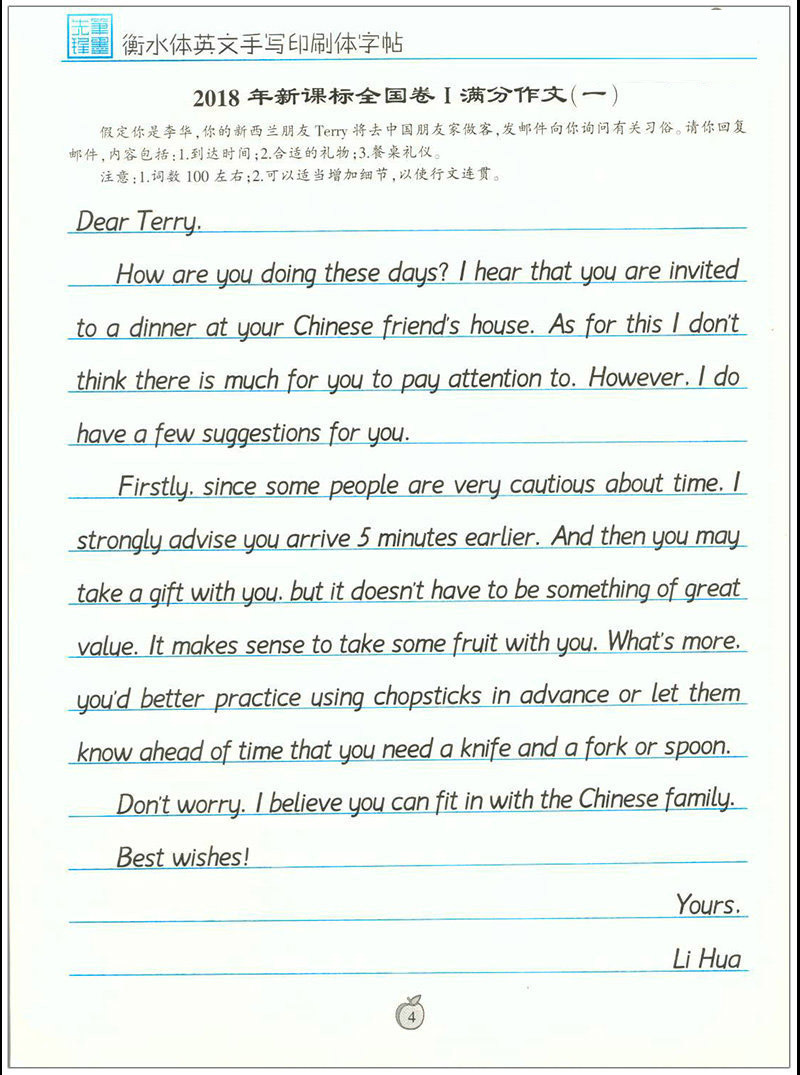 筆畫先鋒
衡水体英文手写印刷体字帖
2018 年新课标全国卷 I 满分作文(一)
假定你是李华,你的新西兰朋友 Terry 将去中国朋友家做客,发邮件向你询问有关习俗。请你回复
邮件,内容包括:1.到达时间;2.合适的礼物;3.餐桌礼仪。
注意:1.词数 100 左右;2.可以适当增加细节,以使行文连贯。
Dear Terry,
How are you doing these days? I hear that you are invited
to a dinner at your Chinese friend's house. As for this I don't
think there is much for you to pay attention to. However, I do
have a few suggestions for you.
Firstly, since some people are very cautious about time, I
strongly advise you arrive 5 minutes earlier. And then you may
take a gift with you, but it doesn't have to be something of great
value. It makes sense to take some fruit with you. What's more,
you'd better practice using chopsticks in advance or let them
know ahead of time that you need a knife and a fork or spoon.
Don't worry. I believe you can fit in with the Chinese family.
Best wishes!
Yours,
Li Hua
4